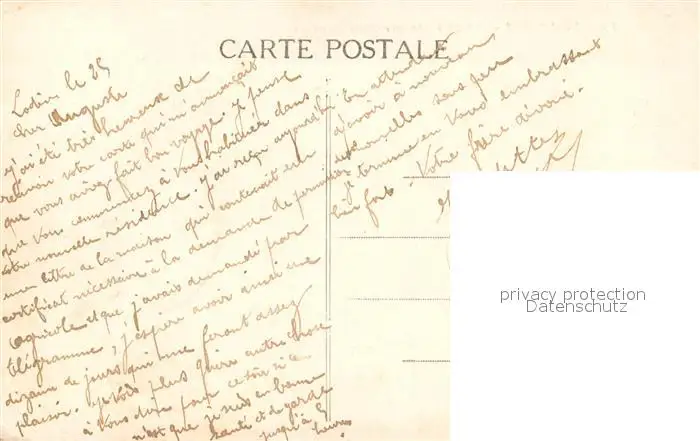 CARTE POSTALE
Lodève le 25
Cher Auguste
j'ai été très heureux de
recevoir votre carte qui m'annonçait
que vous aviez fait bon voyage. je pense
que vous commencez à vous habituer dans
votre nouvelle résidence. j'ai reçu aujourd'hui
une lettre de la maison qui contenait un
certificat nécessaire à la demande de permission
agricole et que j'avais demandé par
télégramme, j'espère avoir ainsi une
dizaine de jours qui me feront assez
plaisir. je vois plus guère autre chose
à vous dire pour ce soir si ce
n'est que je suis en bonne
santé et de garde
jusqu'à 8
heures
En attendant
d'avoir à nouveau
nouvelles sous peu
je termine en vous embrassant
bien fort - Votre frère dévoué.
privacy protection
Datenschutz